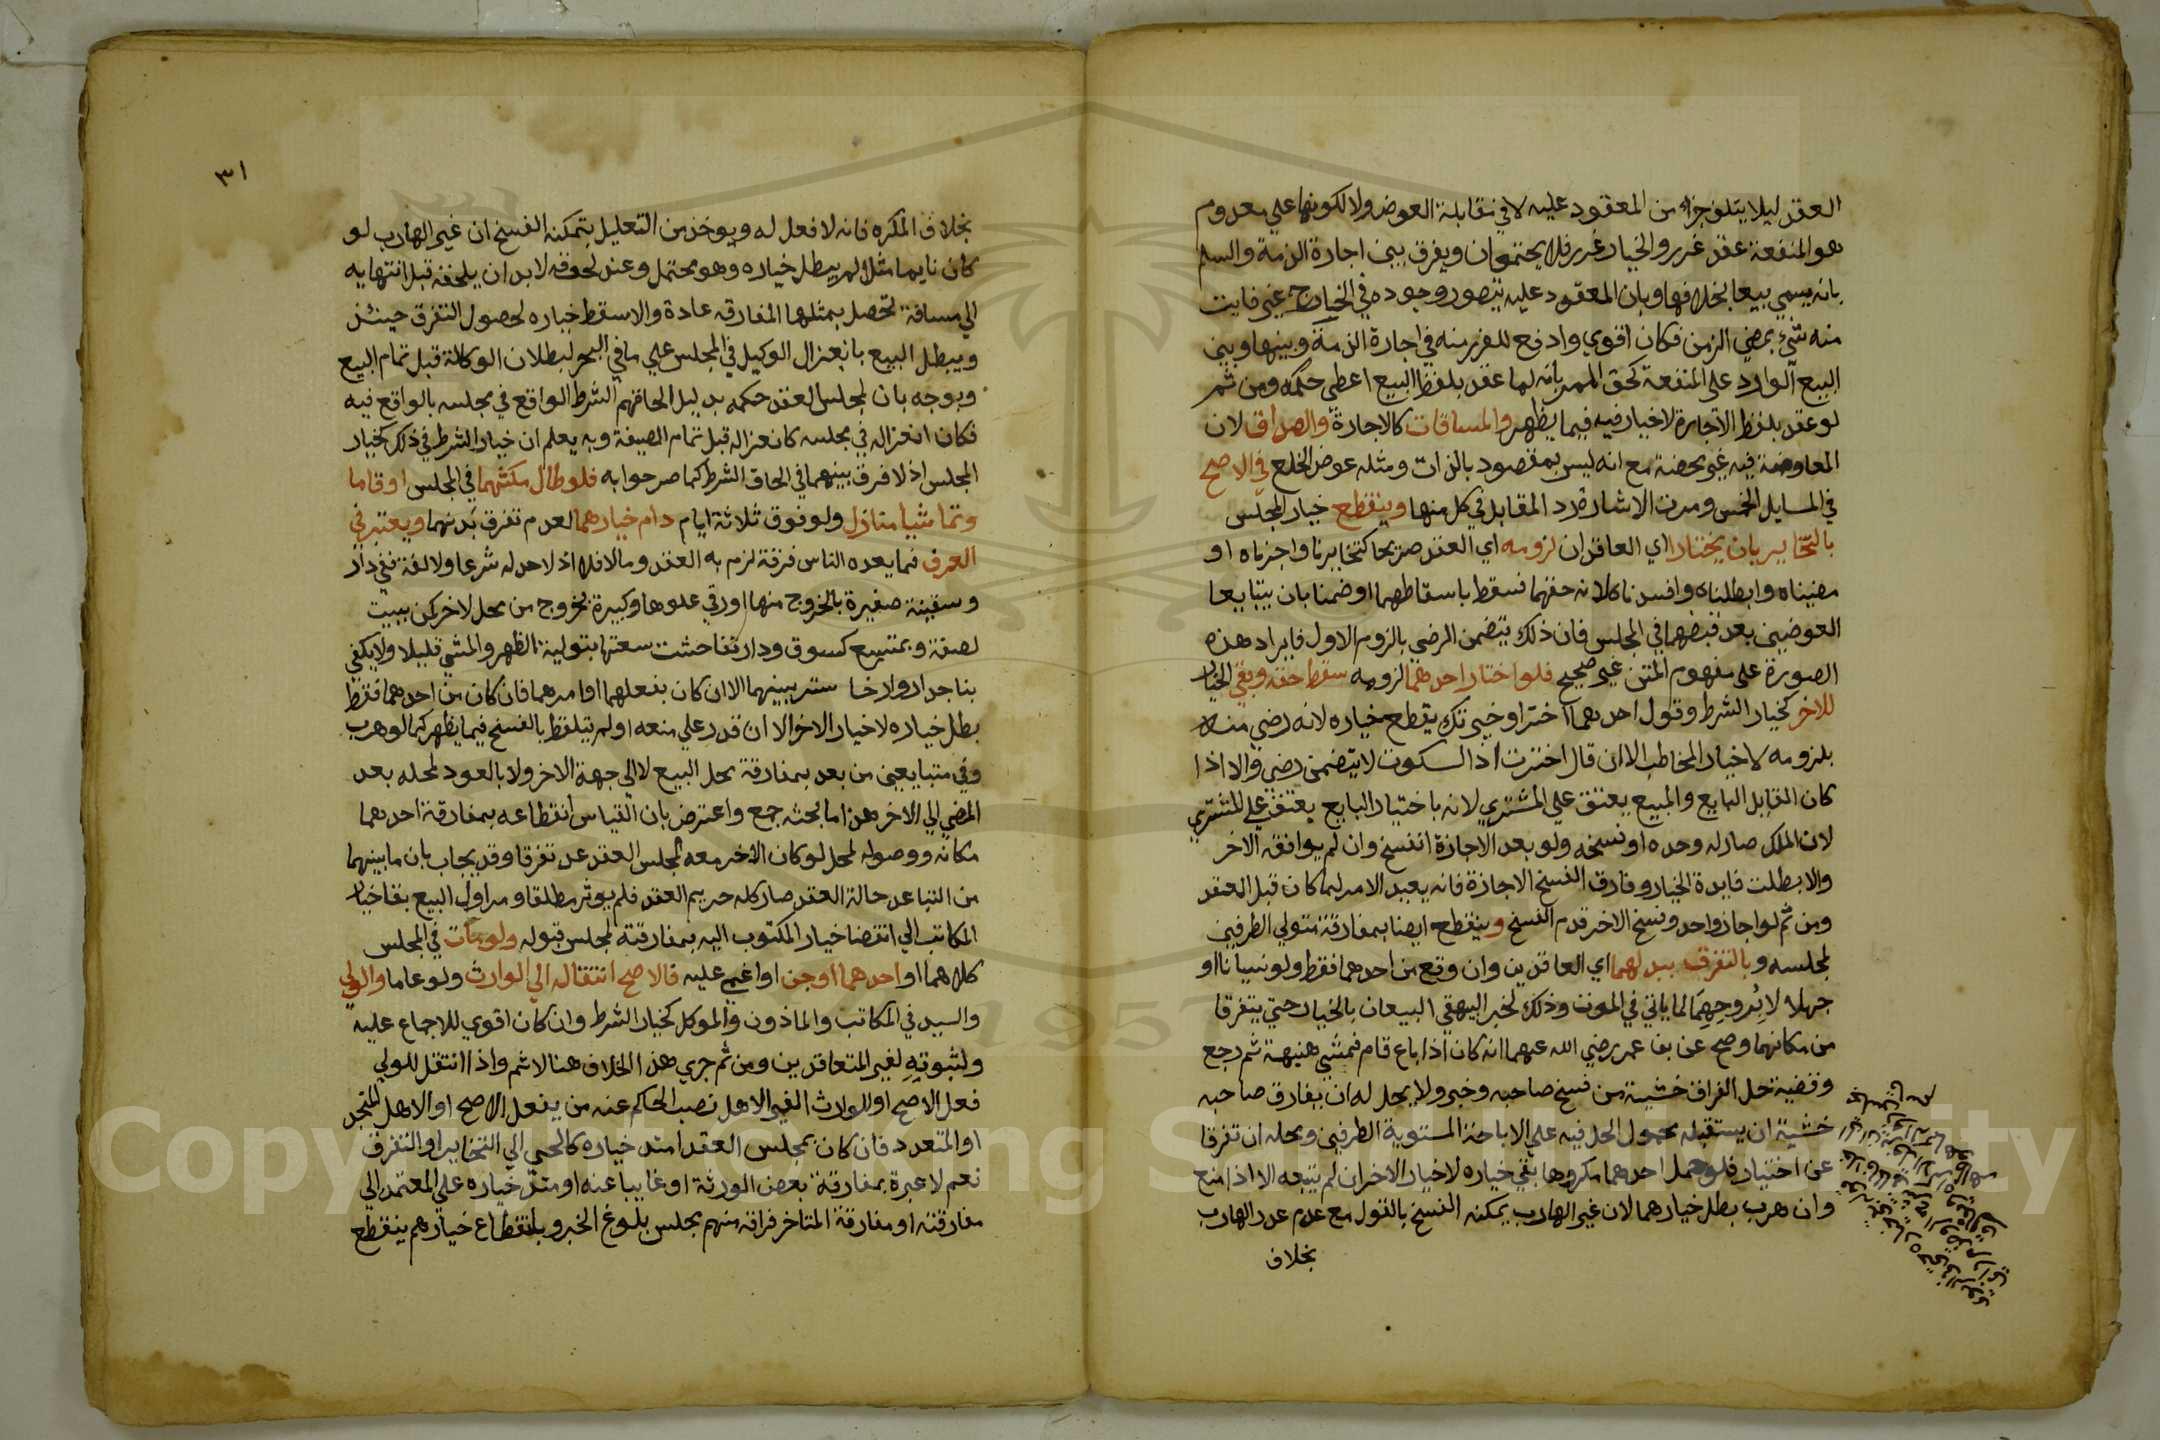 العقد ليلا يتلف جزاء من المعقود عليه لا في مقابلة العوض ولا لكونها علي معدوم
هو المنفعة عقد غرر والخيار غرر فلا يجتمعان ويفرق بين اجارة الذمة والسلم
بانه يسمي بيعا بخلافها وبان المعقود عليه يتصور وجوده في الخارج غير فايت
منه شيء بمضي الزمن فكان اقوي وادفع للغرر منه في اجارة الذمة وبينها وبين
البيع الوارد على المنفعة كحق الممر بانه لما عقد بلفظ البيع اعطي حكمه ومن ثم
لو عقد بلفظ الاجارة لا خيار فيه فيما يظهر والمساقات كالاجارة والصداق لان
المعاوضة فيه غير محضة مع انه ليس بمقصود بالذات ومثله عوض الخلع في الاصح
في المسايل الخمس ومرت الاشارة لرد المقابل في كل منها وينقطع خيار المجلس
بالتخاير بان يختارا اي العاقدان لزومه اي العقد صريحا كتخايرنا واجزناه او
امضيناه وابطلناه وافسدناه لانه حقهما فسقط باسقاطهما او ضمنا بان يتبايعا
العوضين بعد قبضهما في المجلس فان ذلك يتضمن الرضي بالزوم الاول فايراد هذه
الصورة على مفهوم المتن غير صحيح فلو اختار احدهما لزومه سقط حقه وبقي الخيار
للاخر كخيار الشرط وقول احدهما اختر او خيرتك يقطع خياره لانه رضي منه
بلزومه لا خيار المخاطب الا ان قال اخترت اذ السكوت لا يتضمن رضي والا اذا
كان القايل البايع والمبيع يعتق علي المشتري لانه باختيار البايع يعتق علي المشتري
لان الملك صار له وحده او فسخه ولو بعد الاجازة انفسخ وان لم يوافقه الاخر
والا بطلت فايدة الخيار وفارق الفسخ الاجازة فانه يعيد الامر لما كان قبل العقد
ومن ثم لو اجاز واحد وفسخ الاخر قدم الفسخ وينقطع ايضا بمفارقة متولي الطرفين
لمجلسه وبالتفرق ببدنهما اي العاقدين وان وقع من احدهما فقط ولو نسيانا او
جهلا لا بروحهما لما ياتي في الموت وذلك لخبر البيهقي البيعان بالخيار حتي يتفرقا
من مكانهما وصح عن بن عمر رضي الله عنهما انه كان اذا باع قام فمشي هنيهة ثم رجع
وقضية حل الفراق خشية من فسخ صاحبه وخبر ولا يحل له ان يفارق صاحبه
خشية ان يستقيله محمول الحل فيه علي الاباحة المستوية الطرفين ومحله ان تفرقا
عن اختيار فلو حمل احدهما مكروها بقي خياره لا خيار الاخر ان لم يتبعه الا اذا منع
وان هرب بطل خيارهما لان غير الهارب يمكنه الفسخ بالقول مع عدم عذر الهارب
بخلاف
٣١
بخلاف المكره فانه لا فعل له ويوخذ من التعليل بتمكنه الفسخ ان غير الهارب لو
كان نايما مثلا لم يبطل خياره وهو محتمل وعند لحوقه لابد ان يلحقه قبل انتهايه
الي مسافة تحصل بمثلها المفارقة عادة والا سقط خياره لحصول التفرق حينئذ
ويبطل البيع بانعزال الوكيل في المجلس علي ما في البحر لبطلان الوكالة قبل تمام البيع
ويوجه بان لمجلس العقد حكمه بدليل الحاقهم الشرط الواقع في مجلسه بالواقع فيه
فكان انعزاله في مجلسه كانعزاله قبل تمام الصيغة وبه يعلم ان خيار الشرط في ذلك كخيار
المجلس اذ لا فرق بينهما في الحاق الشرط كما صرحوا به فلو طال مكثهما في المجلس او قاما
وتماشيا منازل ولو فوق ثلاثة ايام دام خيارهما لعدم تفرق بدنهما ويعتبر في
العرف فما يعده الناس فرقة لزم به العقد ومالا فلا اذ لا حد له شرعا ولا لغة ففي دار
وسفينة صغيرة بالخروج منها او رقي علوها وكبيرة بخروج من محل لاخر كمن بيت
لصفة وبمتسع كسوق ودار تفاحشت سعتها بتولية الظهر والمشي قليلا ولا يكفي
بنا جدار وارخا ستر بينهما الا ان كان بفعلهما او امرهما فان كان من احدهما فقط
بطل خياره لا خيار الاخر الا ان قدر علي منعه او لم يتلفظ بالفسخ فيما يظهر كما لو هرب
وفي متبايعين من بعد بمفارقة محل البيع لا الي جهة الاخر ولا بالعود لمحله بعد
المضي الي الاخر هذا ما بحثه جمع واعترض بان القياس انقطاعه بمفارقة احدهما
مكانه ووصوله لمحل لو كان الاخر معه لمجلس العقد عد تفرقا وقد يجاب بان ما بينهما
من التباعد حالة العقد صار كله حريم العقد فلم يوثر مطلقا ومر اول البيع بقا خيار
المكاتب الي انقضا خيار المكتوب اليه بمفارقته لمجلس قبوله ولو مات في المجلس
كلاهما او احدهما او جن او اغمي عليه فالاصح انتقاله الي الوارث ولو عاما والولي
والسيد في المكاتب والماذون والموكل كخيار الشرط وان كان اقوي للاجماع عليه
ولثبوته لغير المتعاقدين ومن ثم جري هذا الخلاف هنا لا ثم واذا انتقل للولي
فعل الاصح او للوارث الغير الاهل نصب الحاكم عنه من يفعل الاصح او الاهل المتحد
او المتعدد فان كان بمجلس العقد امتد خياره كالحي الي التخاير او التفرق
نعم لا عبرة بمفارقة بعض الورثة او غايبا عنه امتد خياره علي المعتمد الي
مفارقته او مفارقة المتاخر فراقه منهم مجلس بلوغ الخبر وبانقطاع خيارهم ينقطع